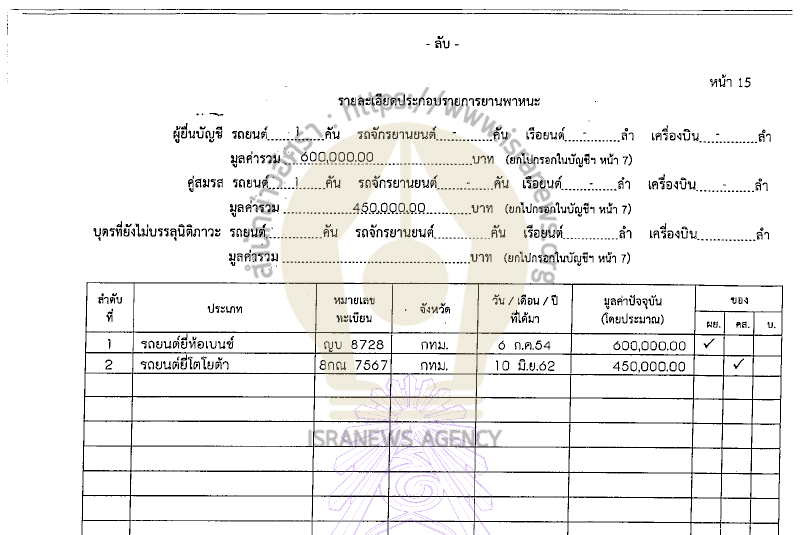 - ลับ -
หน้า 15
รายละเอียดประกอบรายการยานพาหนะ
ผู้ยื่นบัญชี รถยนต์ 1 คัน รถจักรยานยนต์ - คัน เรือยนต์ - ลำ เครื่องบิน - ลำ
มูลค่ารวม 600,000.00 บาท (ยกไปกรอกในบัญชีฯ หน้า 7)
คู่สมรส รถยนต์ 1 คัน รถจักรยานยนต์ - คัน เรือยนต์ - ลำ เครื่องบิน - ลำ
มูลค่ารวม 450,000.00 บาท (ยกไปกรอกในบัญชีฯ หน้า 7)
บุตรที่ยังไม่บรรลุนิติภาวะ รถยนต์ คัน รถจักรยานยนต์ คัน เรือยนต์ ลำ เครื่องบิน ลำ
มูลค่ารวม บาท (ยกไปกรอกในบัญชีฯ หน้า 7)
ลำดับที่ ประเภท หมายเลขทะเบียน จังหวัด วัน / เดือน / ปี ที่ได้มา มูลค่าปัจจุบัน (โดยประมาณ) ของ
ผย. คส. บ.
1 รถยนต์ยี่ห้อเบนซ์ ญบ 8728 กทม. 6 ก.ค.54 600,000.00 ✓
2 รถยนต์ยี่โตโยต้า 8กณ 7567 กทม. 10 มิ.ย.62 450,000.00 ✓
สำนักข่าวอิศรา : https://www.isranews.org
ISRANEWS AGENCY